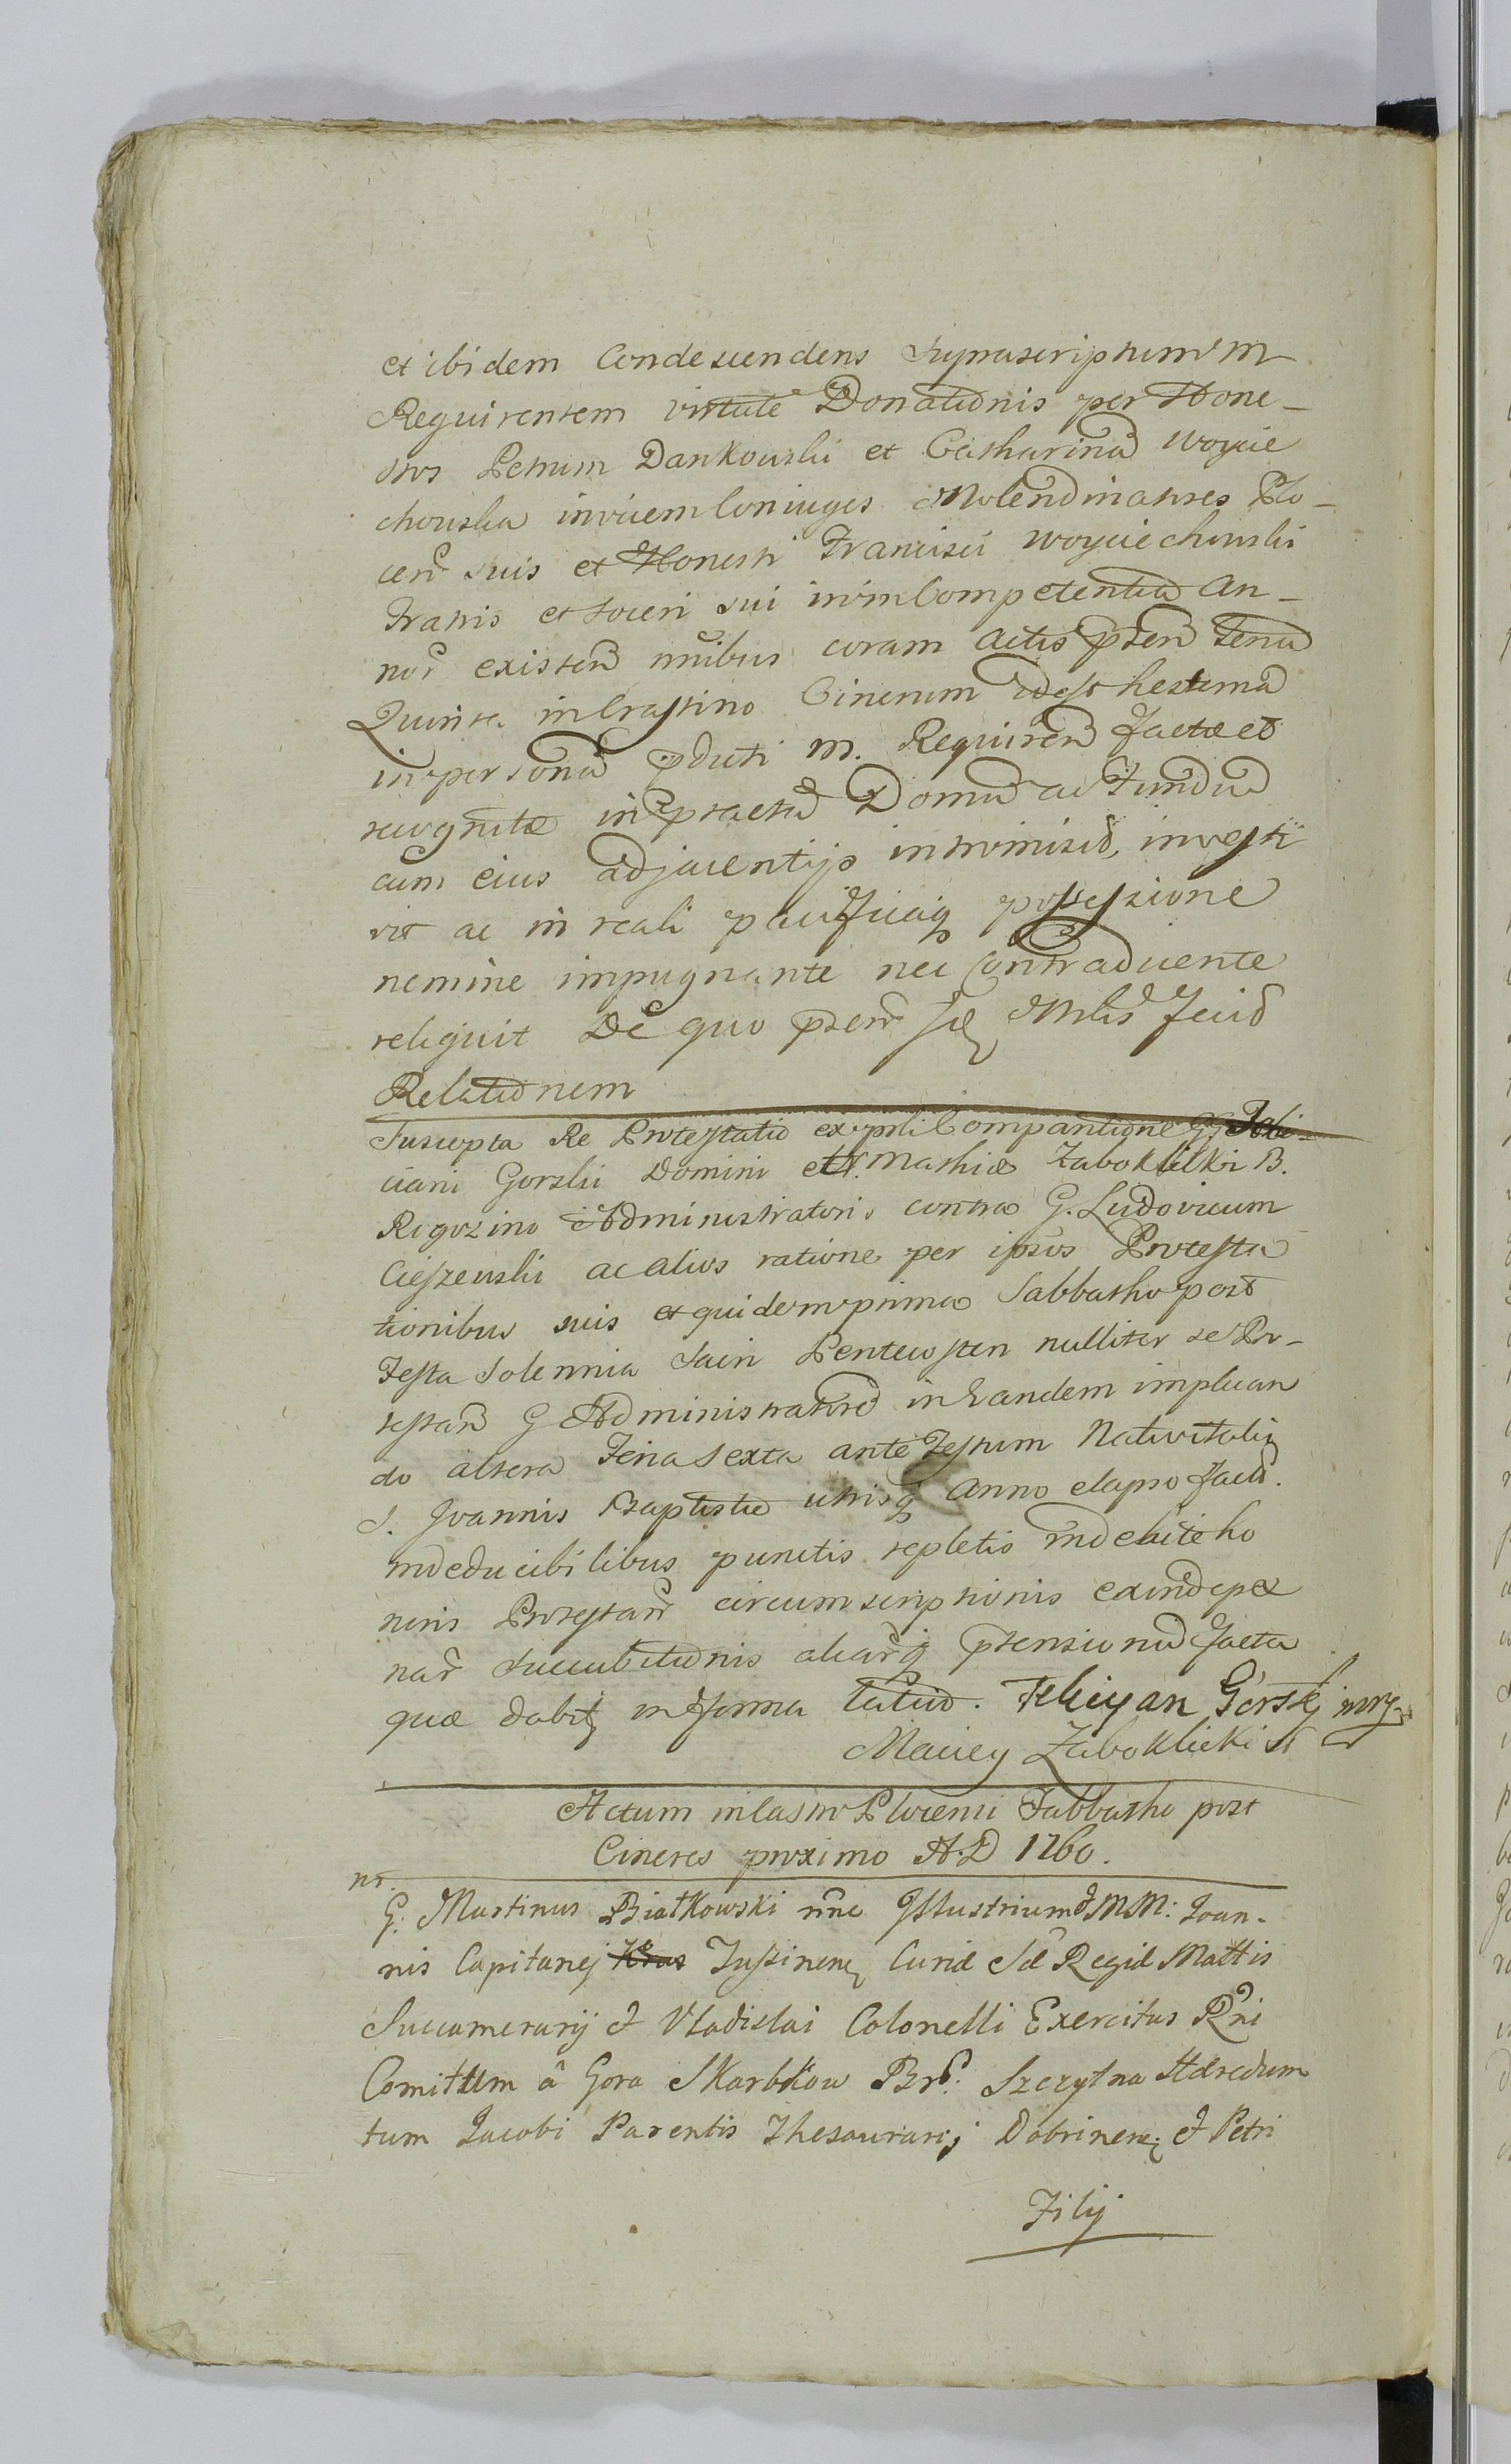 et ibidem Condescendens Suprascriptum m
Requirentem virtute Donationis per Hone-
stos Petrum Dankowski et Catharina Woycie
chowska invicem Coniuges Molendinatores Plo-
cen suis et Honesti Francisci Woyciechowski
Fratris et Soceri sui inim Competentia An-
nor existen nõibus coram actis pnten Feria
Quinta in Crastino Cinerum idest hesterna
in persona pdicti m. Requiren factæ et
recognitæ in ptactã Domũ ac Fundũ
cum eius adjacentijs intromisit, investi
vit ac in reali pacificaq possessione
nemine impugnante nec Contradicente
reliquit De quo pnten se Mlis fecit
Relationem
Suscepta Re Protestatio ex pnli Comparitione GG Feli-
ciani Gorski Domini et N. Mathiæ Zaboklicki B.
Rogozino Administratoris contra G. Ludovicum
Cieszewski ac alios ratione per ipsos Protesta
tionibus suis et quidem prima Sabbatho post
Festa Solennia Sacri Pentecosten nulliter se Pro-
testan G Administratore in Eandem implican
do altera Feria Sexta ante Festum Nativitatis
S. Joannis Baptistæ utrisq Anno elapso fact.
indeducibilibus punctis repletis indebite ho
noris Protestan circumscriptionis exinde pæ
nar succubitionis aliarq ptensionũ facta
quæ dabit in forma latior. Felicyan Górskj mp
Maciey Zaboklicki
Actum in Castro Plocensi Sabbatho post
Cineres proximo A. D 1760.
nr.
G. Martinus Białkowski nõe Illustrium MM: Joan-
nis Capitanej Jussinen Curiæ Sæ Regiæ Mattis
Succamerarij et Vladislai Colonelli Exercitus Rni
Comitum â Gora Skarbkow Br. Szczytna Hæredum
tum Jacobi Parentis Thesaurarij Dobrinen et Petri
Filij